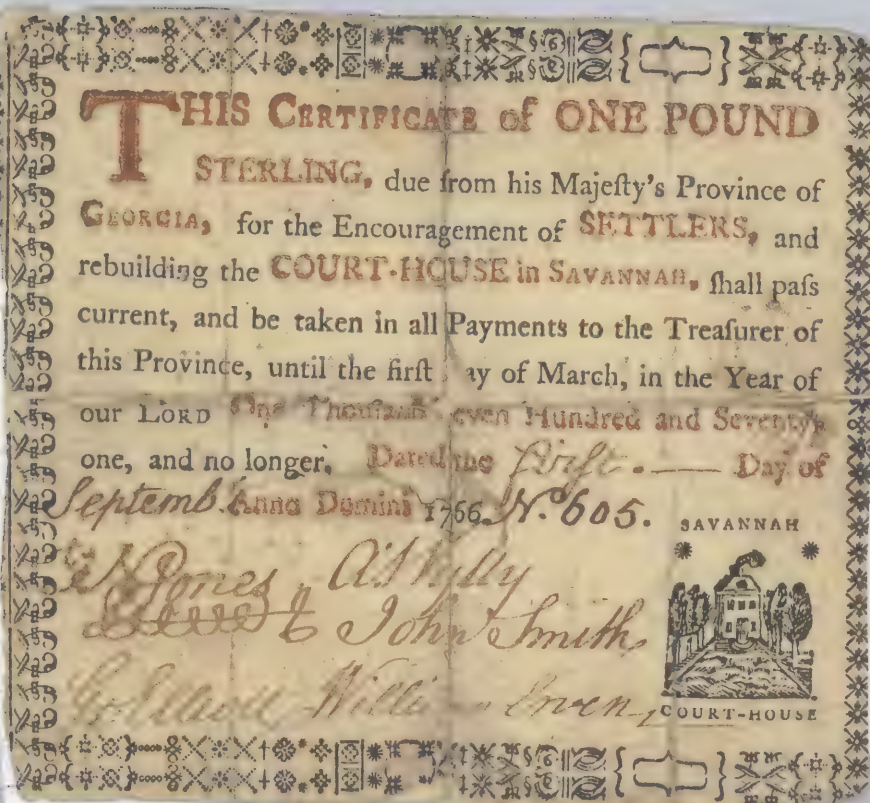 THIS CERTIFICATE of ONE POUND
STERLING, due from his Majeſty's Province of
GEORGIA, for the Encouragement of SETTLERS, and
rebuilding the COURT-HOUSE in SAVANNAH, ſhall paſs
current, and be taken in all Payments to the Treaſurer of
this Province, until the firſt ay of March, in the Year of
our LORD One Thouſand even Hundred and Seventy-
one, and no longer. Dated the firſt. — Day of
Septemb. Anno Domini 1766. No. 605.
SAVANNAH
Jones
John Smith
Ewen
COURT-HOUSE